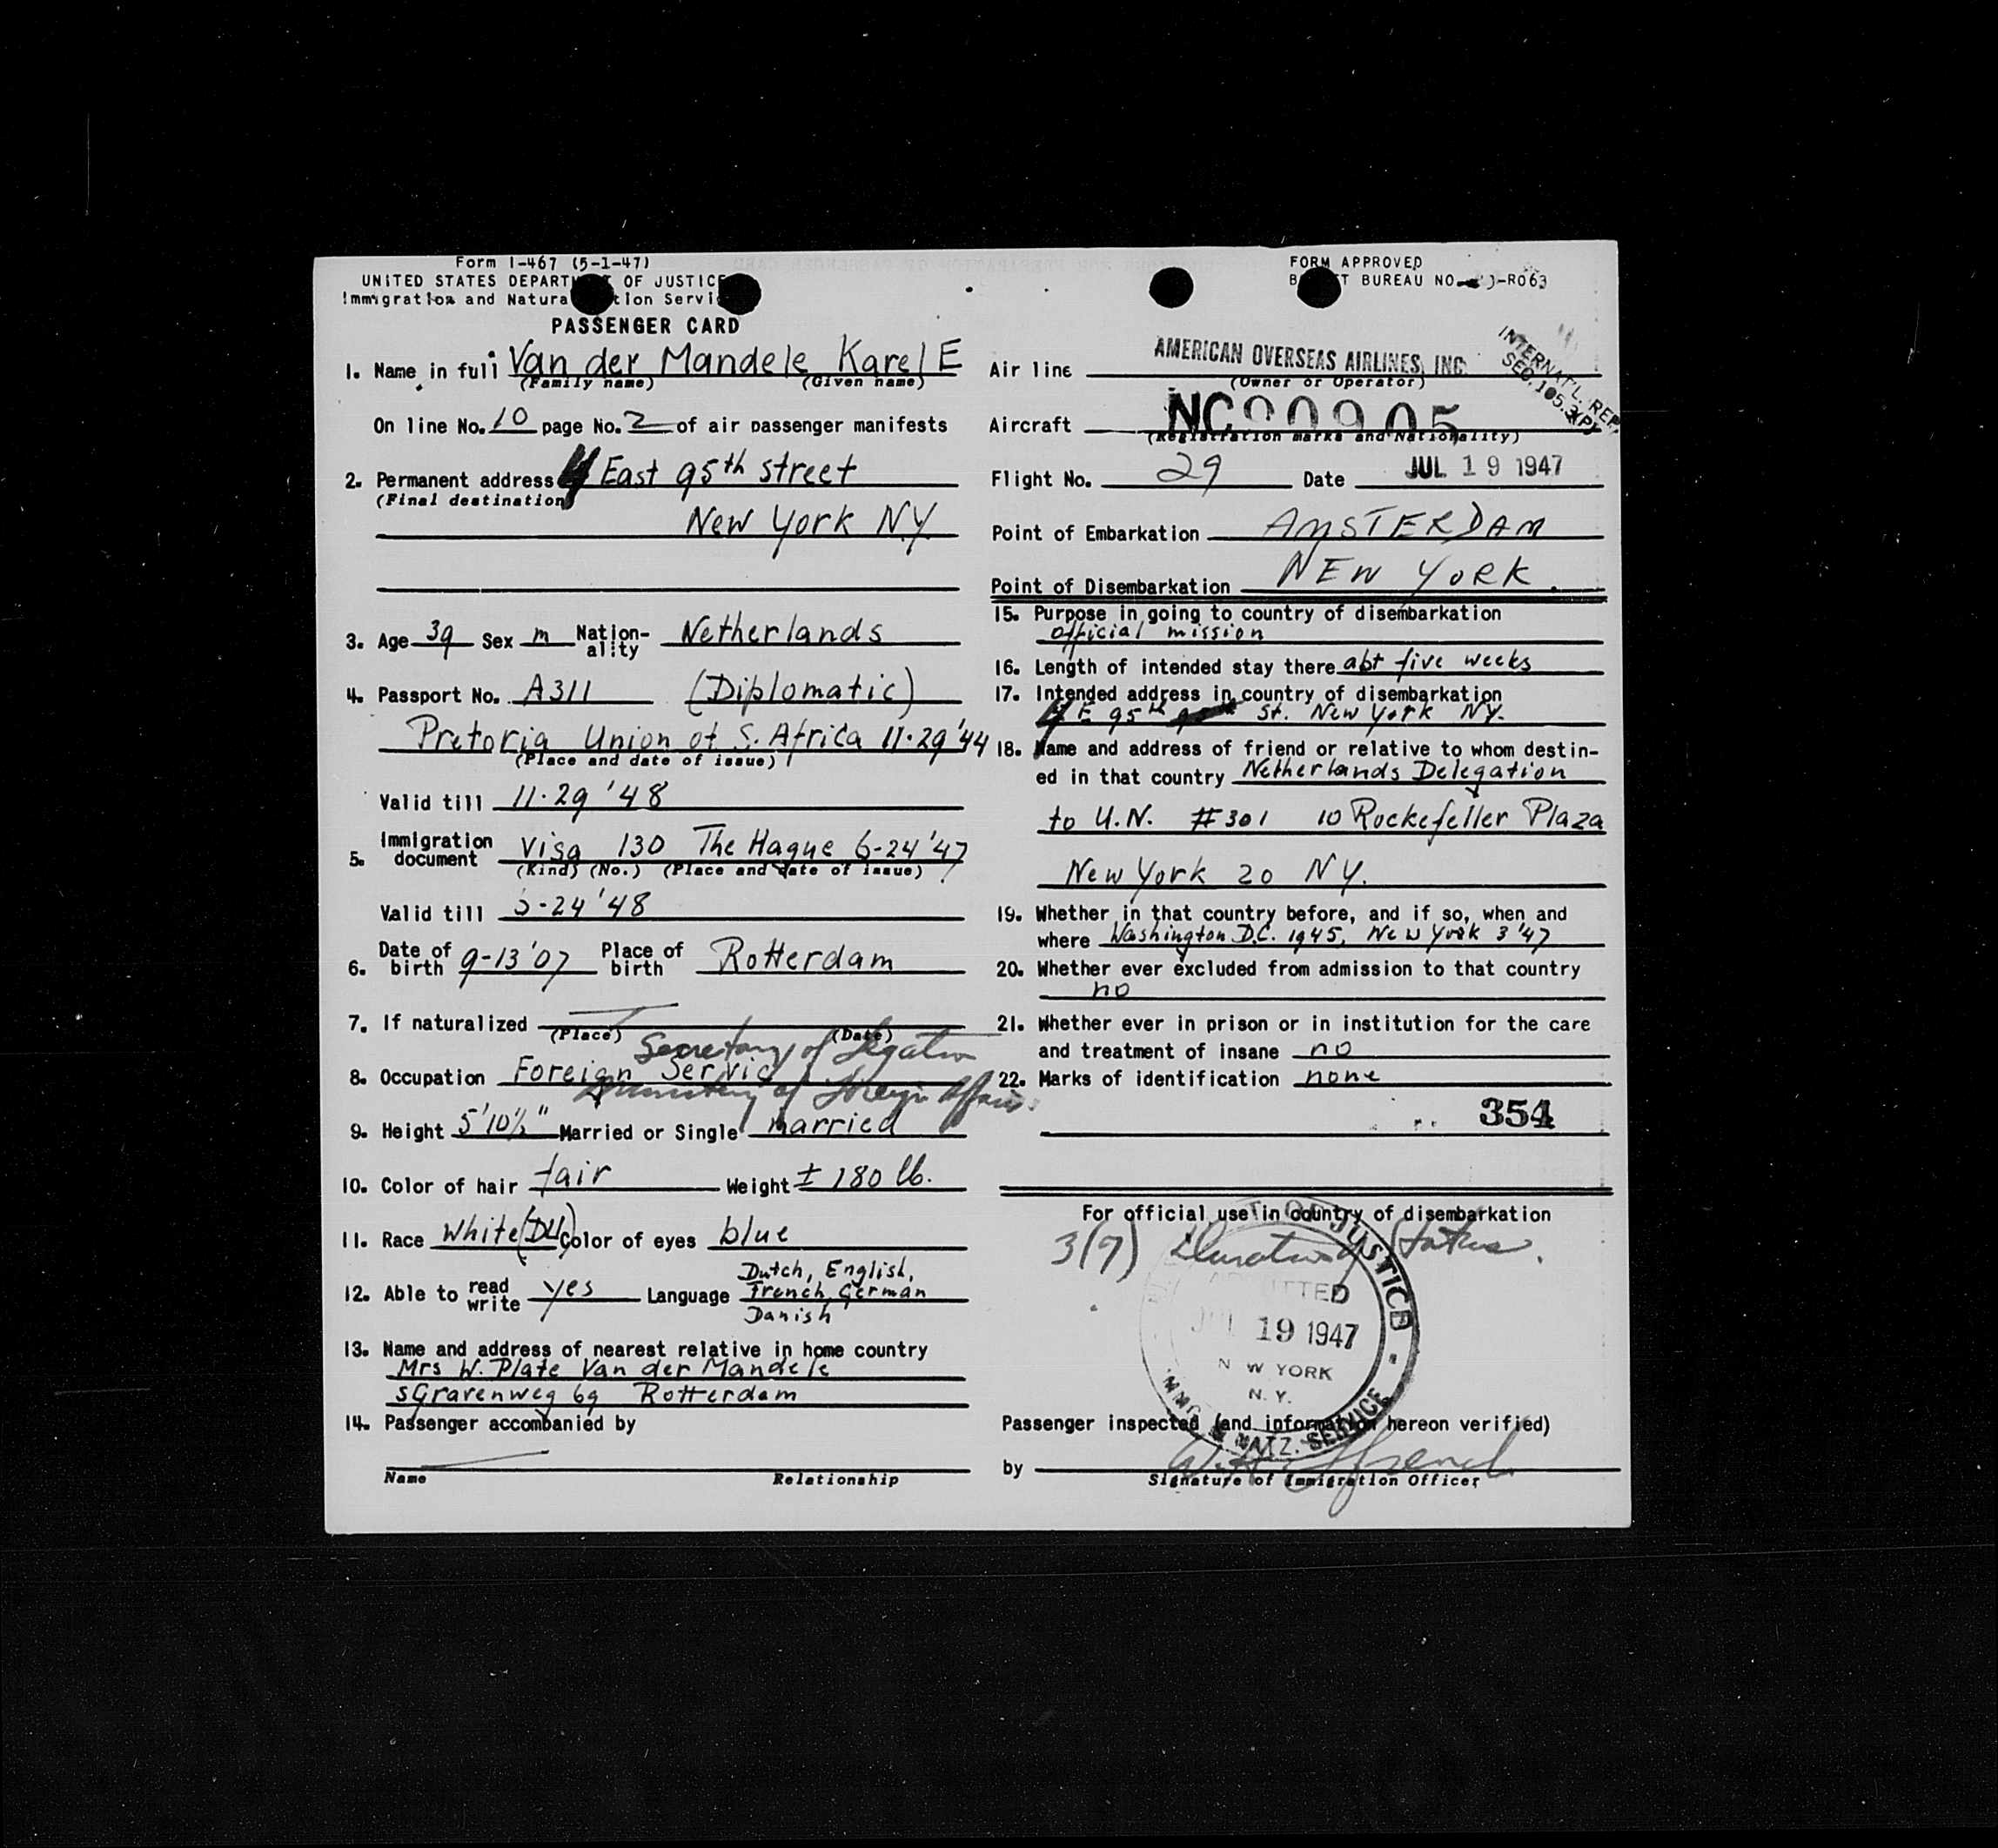 Form I-467 (5-1-47)
UNITED STATES DEPART OF JUSTICE
Immigration and Natura tion Servi
PASSENGER CARD
1. Name in full Van der Mandele Karel E
(Family name) (Given name)
On line No. 10 page No. 2 of air passenger manifests
2. Permanent address 4 East 95th street
(Final destination)
New York N.Y.
3. Age 39 Sex m Nation-ality Netherlands
4. Passport No. A311 (Diplomatic)
Pretoria Union of S. Africa 11-29'44
(Place and date of issue)
Valid till 11-29'48
5. Immigration document Visa 130 The Hague 6-24'47
(Kind) (No.) (Place and date of issue)
Valid till -24'48
6. Date of birth 9-13'07 Place of birth Rotterdam
7. If naturalized
(Place) (Date)
Secretary of Legation
8. Occupation Foreign Servic
Ministry of Foreign Affairs
9. Height 5'10½" Married or Single married
10. Color of hair fair Weight ± 180 lb.
11. Race White (Du) Color of eyes blue
12. Able to read write yes Language Dutch, English,
French, German
Danish
13. Name and address of nearest relative in home country
Mrs W. Plate Van der Mandele
sGravenweg 69 Rotterdam
14. Passenger accompanied by
Name Relationship
FORM APPROVED
B T BUREAU NO. -R063
INTERNAT'L. REP.
SEC. 105.
Air line AMERICAN OVERSEAS AIRLINES, INC.
(Owner or Operator)
Aircraft NC90905
(Registration marks and Nationality)
Flight No. 29 Date JUL 19 1947
Point of Embarkation AMSTERDAM
Point of Disembarkation NEW YORK.
15. Purpose in going to country of disembarkation
official mission
16. Length of intended stay there abt five weeks
17. Intended address in country of disembarkation
4 E 95th St. New York NY.
18. Name and address of friend or relative to whom destin-
ed in that country Netherlands Delegation
to U.N. #301 10 Rockefeller Plaza
New York 20 NY.
19. Whether in that country before, and if so, when and
where Washington D.C. 1945, New York 3'47
20. Whether ever excluded from admission to that country
no
21. Whether ever in prison or in institution for the care
and treatment of insane no
22. Marks of identification none
354
For official use in country of disembarkation
3(7) Duration Status.
T. OF JUSTICE
ADMITTED
JUL 19 1947
NEW YORK
N.Y.
IMM. & NATZ. SERVICE
Passenger inspected (and information hereon verified)
by
Signature of Immigration Officer